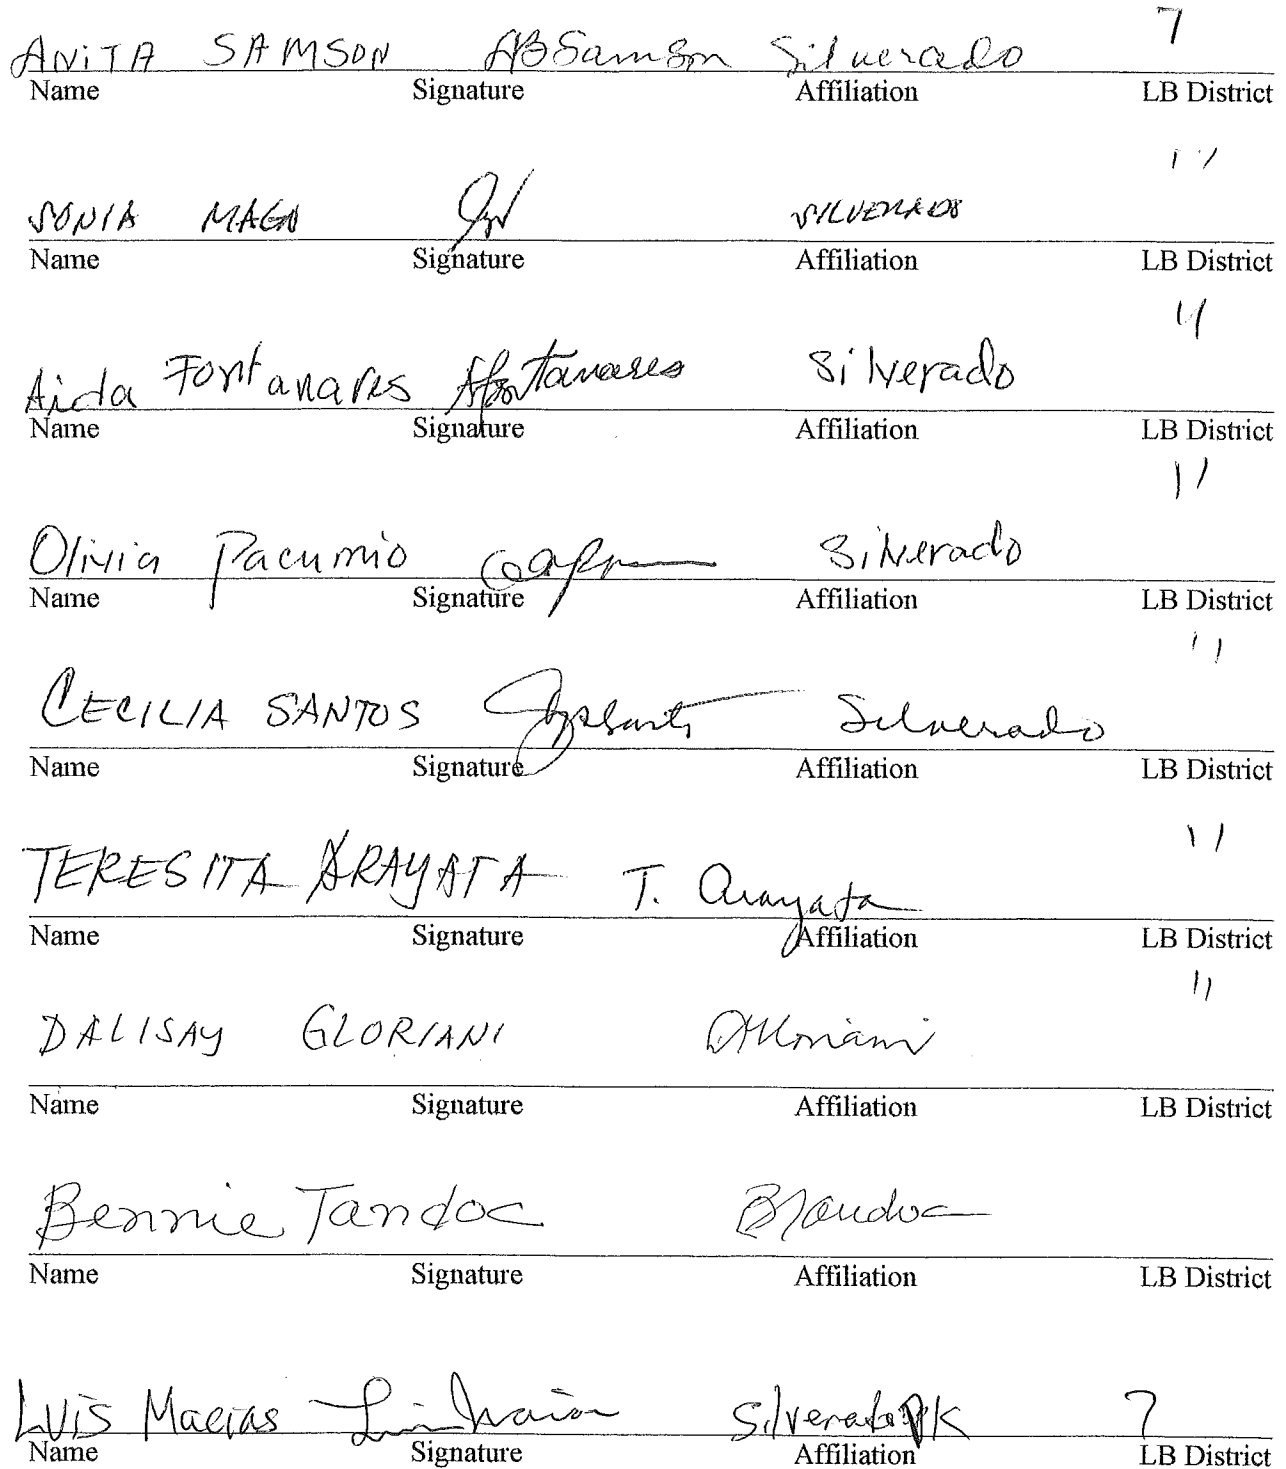 7
ANiTA SAMSON ABSamson Silverado
Name Signature Affiliation LB District
"
SONIA MAGN SILVERADO
Name Signature Affiliation LB District
"
Aida Fontanares Afontanares Silverado
Name Signature Affiliation LB District
"
Olivia Pacumio Silverado
Name Signature Affiliation LB District
"
CECILIA SANTOS Silverado
Name Signature Affiliation LB District
"
TERESITA ARAYATA T. Arayata
Name Signature Affiliation LB District
"
DALISAY GLORIANI
Name Signature Affiliation LB District
Bennie Tandoc BTandoc
Name Signature Affiliation LB District
LUiS Macias Silverado PK 7
Name Signature Affiliation LB District